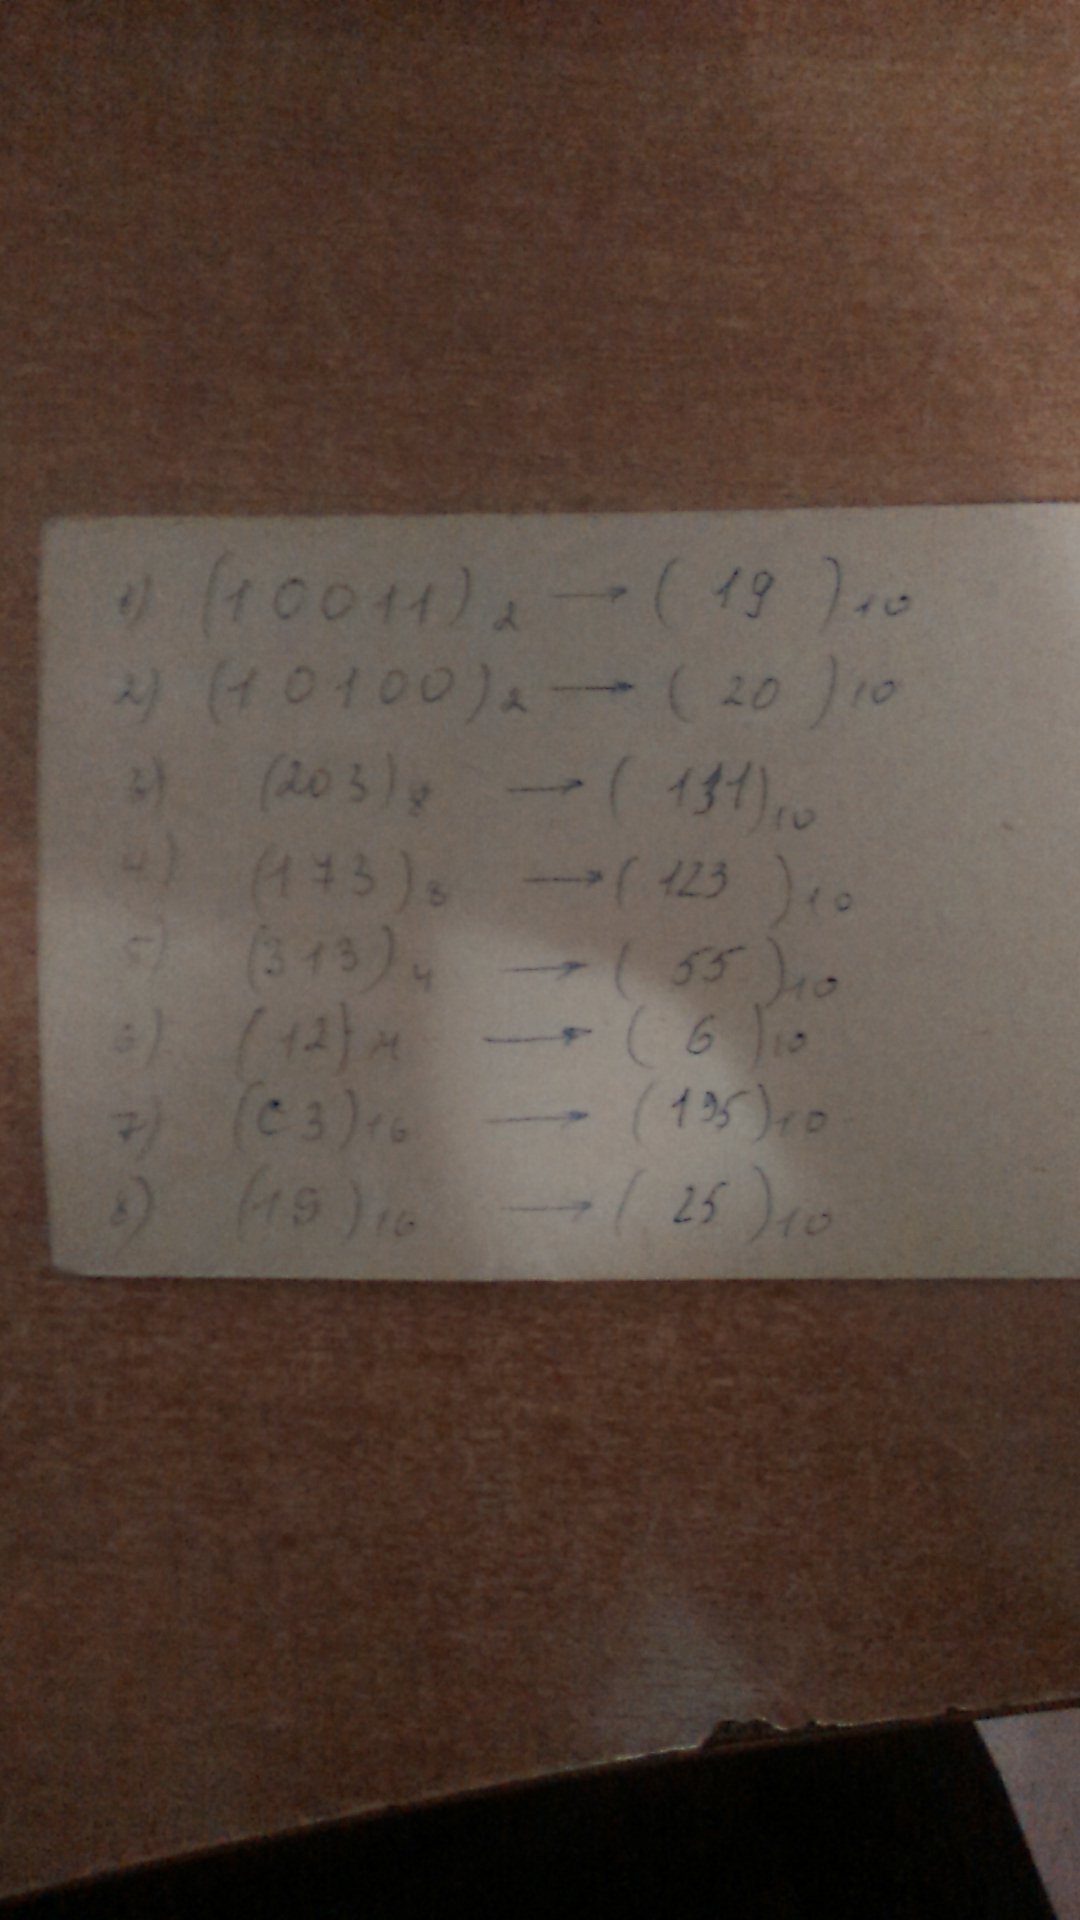 1) (10011)2 → (19)10
2) (10100)2 → (20)10
3) (203)8 → (131)10
4) (173)8 → (123)10
5) (313)4 → (55)10
6) (12)4 → (6)10
7) (C3)16 → (195)10
8) (19)16 → (25)10